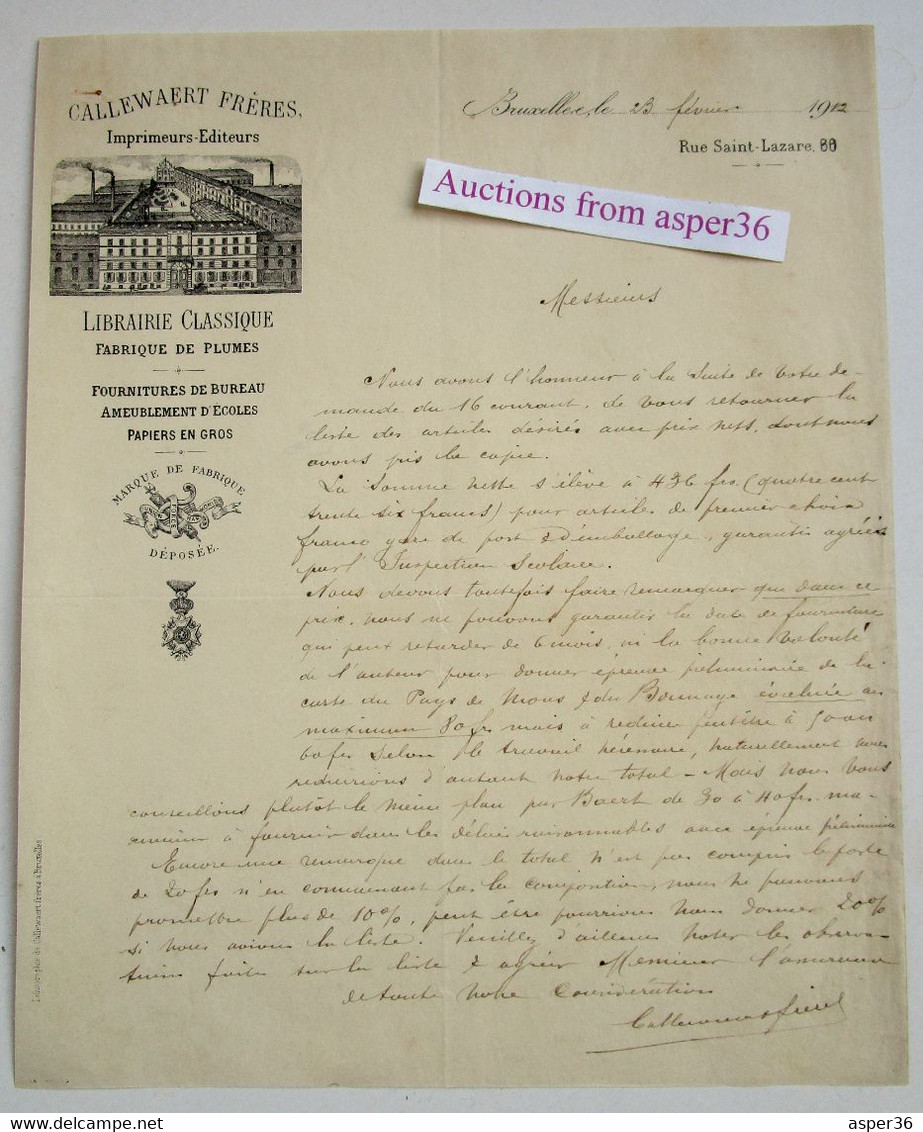 CALLEWAERT FRÈRES,
Imprimeurs-Editeurs
LIBRAIRIE CLASSIQUE
FABRIQUE DE PLUMES
FOURNITURES DE BUREAU
AMEUBLEMENT D'ECOLES
PAPIERS EN GROS
MARQUE DE FABRIQUE
FORCE
DÉPOSÉE.
Bruxelles, le 23 février 1912
Rue Saint-Lazare,
Auctions from asper36
Messieurs
Nous avons l'honneur à la suite de votre de-
mande du 16 courant, de vous retourner la
liste des articles désirés avec prix nets, dont nous
avons pis la copie.
La somme nette s'élève à 436 frs. (quatre cent
trente six francs) pour articles de premier choix
franco gare de port & d'emballage, garantis agréés
par l'Inspection Scolaire.
Nous devons toutefois faire remarquer que dans ce
prix, nous ne pouvons garantir la date de fourniture
qui peut retarder de 6 mois, ni la bonne volonté
de l'auteur pour donner épreuve préliminaire de la
carte du Pays de Mons & du Borinage évaluée au
maximum 80 frs mais à réduire peutêtre à 50 ou
60 frs selon le travail nécessaire, naturellement nous
réduirions d'autant notre total - Mais nous vous
conseillons plutôt le même plan par Baert de 30 à 40 frs. ma-
ximum à fournir dans les délais raisonnables avec épreuve préliminaire
Encore une remarque dans le total n'est pas compris le poste
de 20 frs n'en connaissant pas la composition, nous ne pouvons
promettre plus de 10%, peut être pourrions nous donner 20%
si nous avions la liste. Veuillez d'ailleurs noter les observa-
tions faites sur la liste & agréer Messieurs l'assurance
de toute notre considération
Callewaert frères
de Callewaert frères à Bruxelles
asper36
asper36